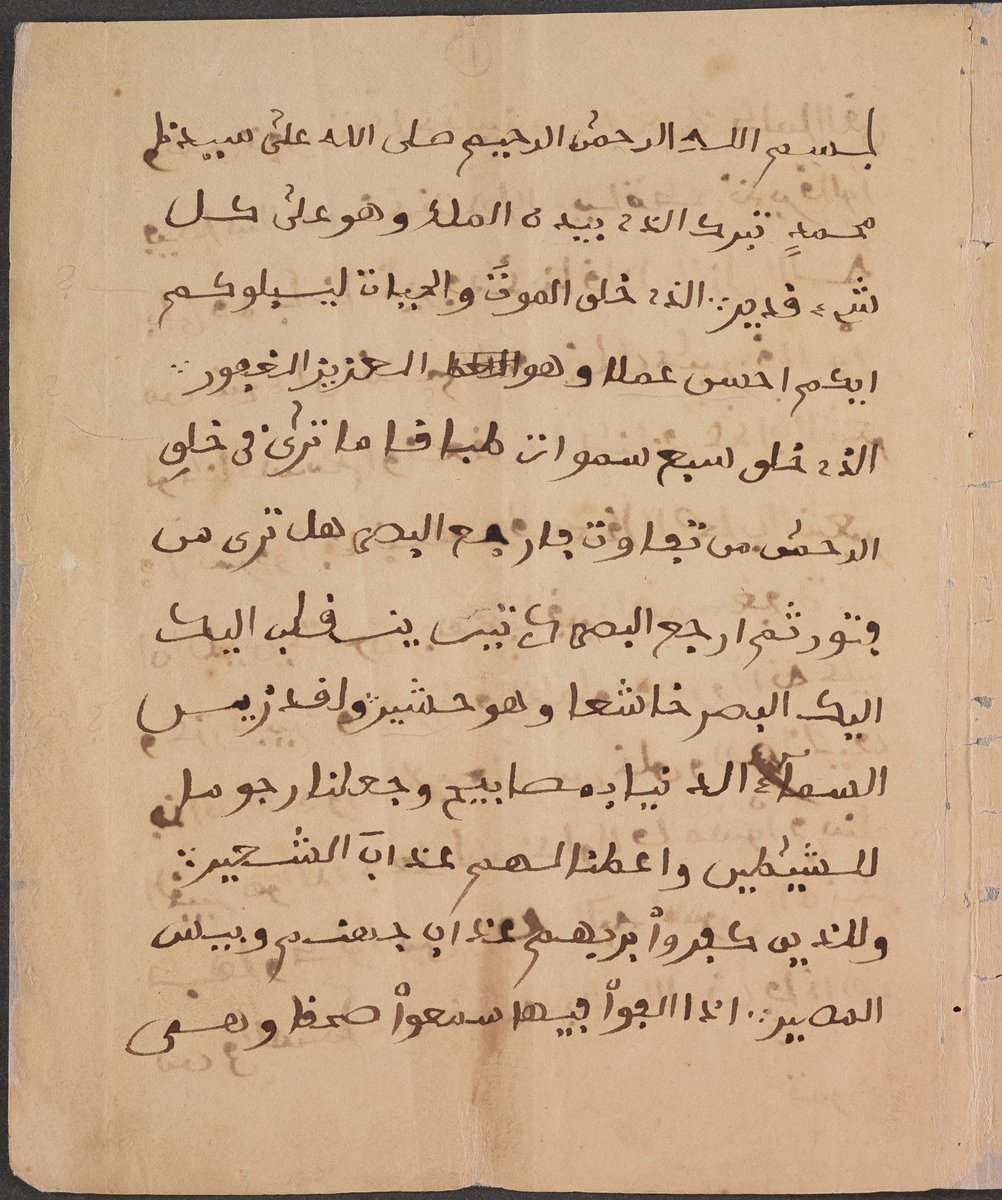 بسم الله الرحمن الرحيم صلى الله على سيدنا
محمدٍ تبرك الذي بيده الملك وهو على كل
شيء قدير الذي خلق الموتَ والحيات ليبلوكم
ايكم احسن عملا وهو العزيز الغفور
الذي خلق سبع سموات طباقا ما ترى في خلقِ
الرحمن من تفاوت فارجع البصر هل ترى من
فتور ثم ارجع البصر كرتين ينقلب اليك
اليك البصر خاشعا وهو حشير ولقد زين
السمآء الدنيا بمصابيح وجعلنا رجوما
للشيطين واعطنا لهم عذابَ الشعير
وللذين كفرواْ بربهم عذاب جهنم وبيس
المصير اذا القواْ فيها سمعواْ صحقا وهى